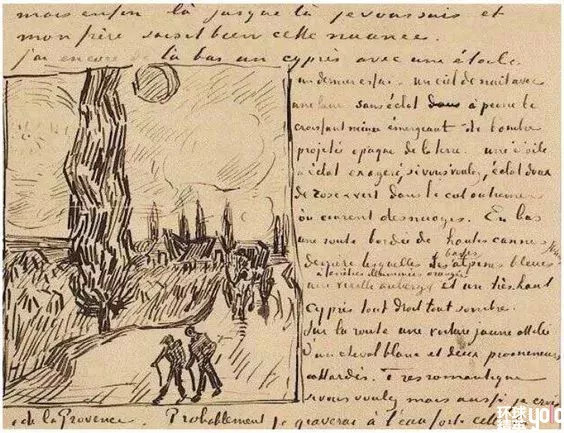 mais enfin là jusque là je vous suis et
mon frère saisit bien cette nuance.
j'ai encore de là bas un cyprès avec une étoile
un dernier essai - un ciel de nuit avec
une lune sans éclat à peine le
croissant mince émergeant de l'ombre
projetée opaque de la terre - une étoile
à éclat exagéré, si vous voulez, éclat doux
de rose & vert dans le ciel outremer
où courent des nuages. En bas
une route bordée de hautes cannes
derrière lesquelles les basses alpines bleues
à fenêtres illuminées orangée
une vieille auberge et un très haut
cyprès tout droit tout sombre.
Sur la route une voiture jaune attelée
d'un cheval blanc et deux promeneurs
attardés. Très romantique
si vous voulez mais aussi je crois
de la Provence. Probablement je graverai à l'eau forte celle
环球